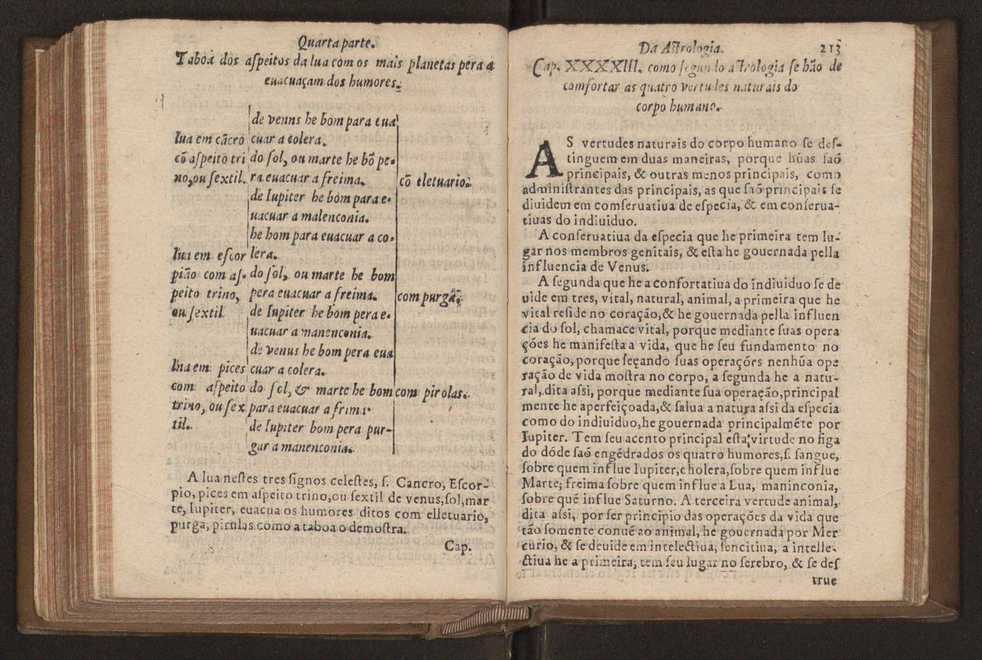 Quarta parte.
Taboa dos aſpeitos da lua com os mais planetas pera a
euacuaçam dos humores.
de venus he bom para eua
lua em cãcro cuar a colera.
cõ aſpeito tri do ſol, ou marte he bõ pe-
no, ou ſextil. ra euacuar a freima. cõ eletuario.
de Iupiter he bom para e-
uacuar a malenconia.
he bom para euacuar a co-
lua em eſcor lera.
pião com aſ- do ſol, ou marte he bom
peito trino, pera euacuar a freima. com purgã.
ou ſextil de Iupiter he bom pera e-
uacuar a manenconia.
de venus he bom pera eua
lua em pices cuar a colera.
com aſpeito do ſol, & marte he bom com pirolas.
trino, ou ſex para euacuar a freima
til. de Iupiter bom pera pur-
gar a manenconia.
A lua neſtes tres ſignos celeſtes, ſ. Cancro, Eſcor-
pio, pices em aſpeito trino, ou ſextil de venus, ſol, mar
te, Iupiter, euacua os humores ditos com elletuario,
purga, pirulas como a taboa o demoſtra.
Cap.
Da Aſtrologia. 213
Cap. XXXXIII. como ſegundo aſtrologia ſe hão de
comfortar as quatro vertudes naturais do
corpo humano.
AS vertudes naturais do corpo humano ſe deſ-
tinguem em duas maneiras, porque hũas ſaõ
principais, & outras menos principais, como
adminiſtrantes das principais, as que ſaõ principais ſe
diuidem em comſeruatiua de eſpecia, & em conſerua-
tiuas do indiuiduo.
A conſeruatiua da eſpecia que he primeira tem lu-
gar nos membros genitais, & eſta he governada pella
influencia de Venus.
A ſegunda que he a confortatiua do indiuiduo ſe de
uide em tres, vital, natural, animal, a primeira que he
vital reſide no coração, & he gouernada pella influen
cia do ſol, chamace vital, porque mediante ſuas opera
ções he manifeſta a vida, que he ſeu fundamento no
coração, porque ſeçando ſuas operações nenhũa ope
ração de vida moſtra no corpo, a ſegunda he a natu-
ral, dita aſsi, porque mediante ſua operação, principal
mente he aperfeiçoada, & ſalua a natura aſsi da eſpecia
como do indiuiduo, he gouernada principalmẽte por
Iupiter. Tem ſeu acento principal eſta virtude no figa
do dõde ſaõ engẽdrados os quatro humores, ſ. ſangue,
ſobre quem influe Iupiter, cholera, ſobre quem influe
Marte, freima ſobre quem influe a Lua, maninconia,
ſobre quẽ influe Saturno. A terceira vertude animal,
dita aſsi, por ſer principio das operações da vida que
tão ſomente conuẽ ao animal, he gouernada por Mer
curio, & ſe deuide em intelectiua, ſencitiua, a intelle-
ctiua he a primeira, tem ſeu lugar no ſerebro, & ſe deſ
true